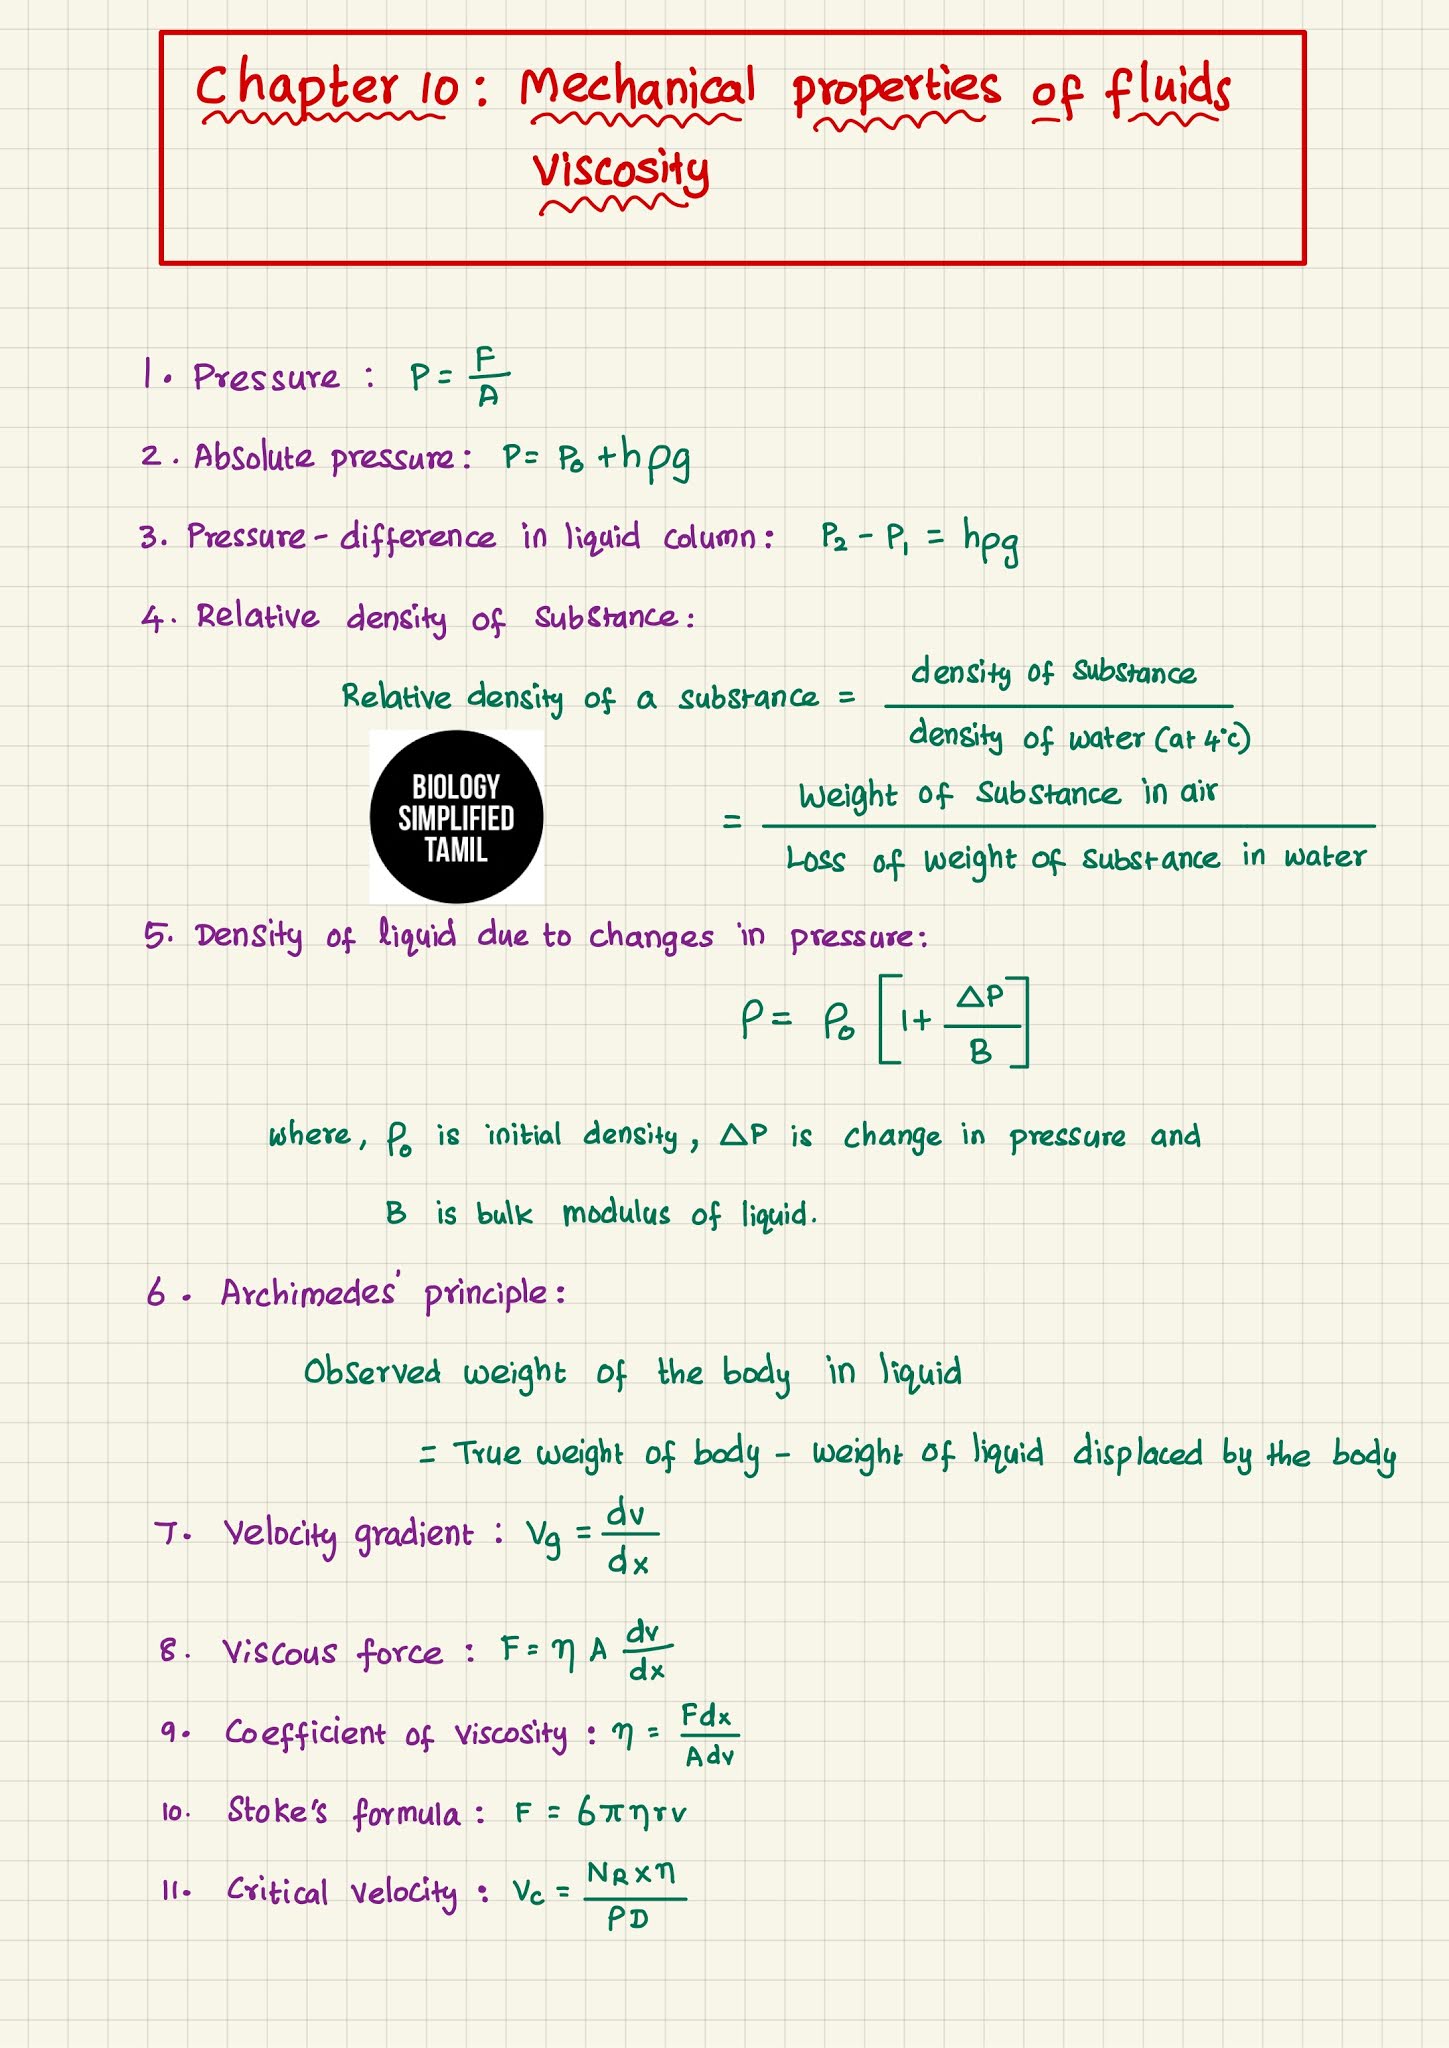 Chapter 10: Mechanical properties of fluids
Viscosity
1. Pressure : P = F/A
2. Absolute pressure: P = P₀ + hρg
3. Pressure - difference in liquid column: P₂ - P₁ = hρg
4. Relative density of substance:
Relative density of a substance = density of substance / density of water (at 4°c)
BIOLOGY
SIMPLIFIED
TAMIL
= Weight of substance in air / Loss of weight of substance in water
5. Density of liquid due to changes in pressure:
ρ = ρ₀ [1 + ΔP/B]
where, ρ₀ is initial density, ΔP is change in pressure and
B is bulk modulus of liquid.
6. Archimedes' principle:
Observed weight of the body in liquid
= True weight of body - weight of liquid displaced by the body
7. Velocity gradient : Vg = dv/dx
8. Viscous force : F = η A dv/dx
9. Coefficient of viscosity : η = Fdx/Adv
10. Stoke's formula : F = 6πηrv
11. Critical velocity : Vc = NR x η / ρD